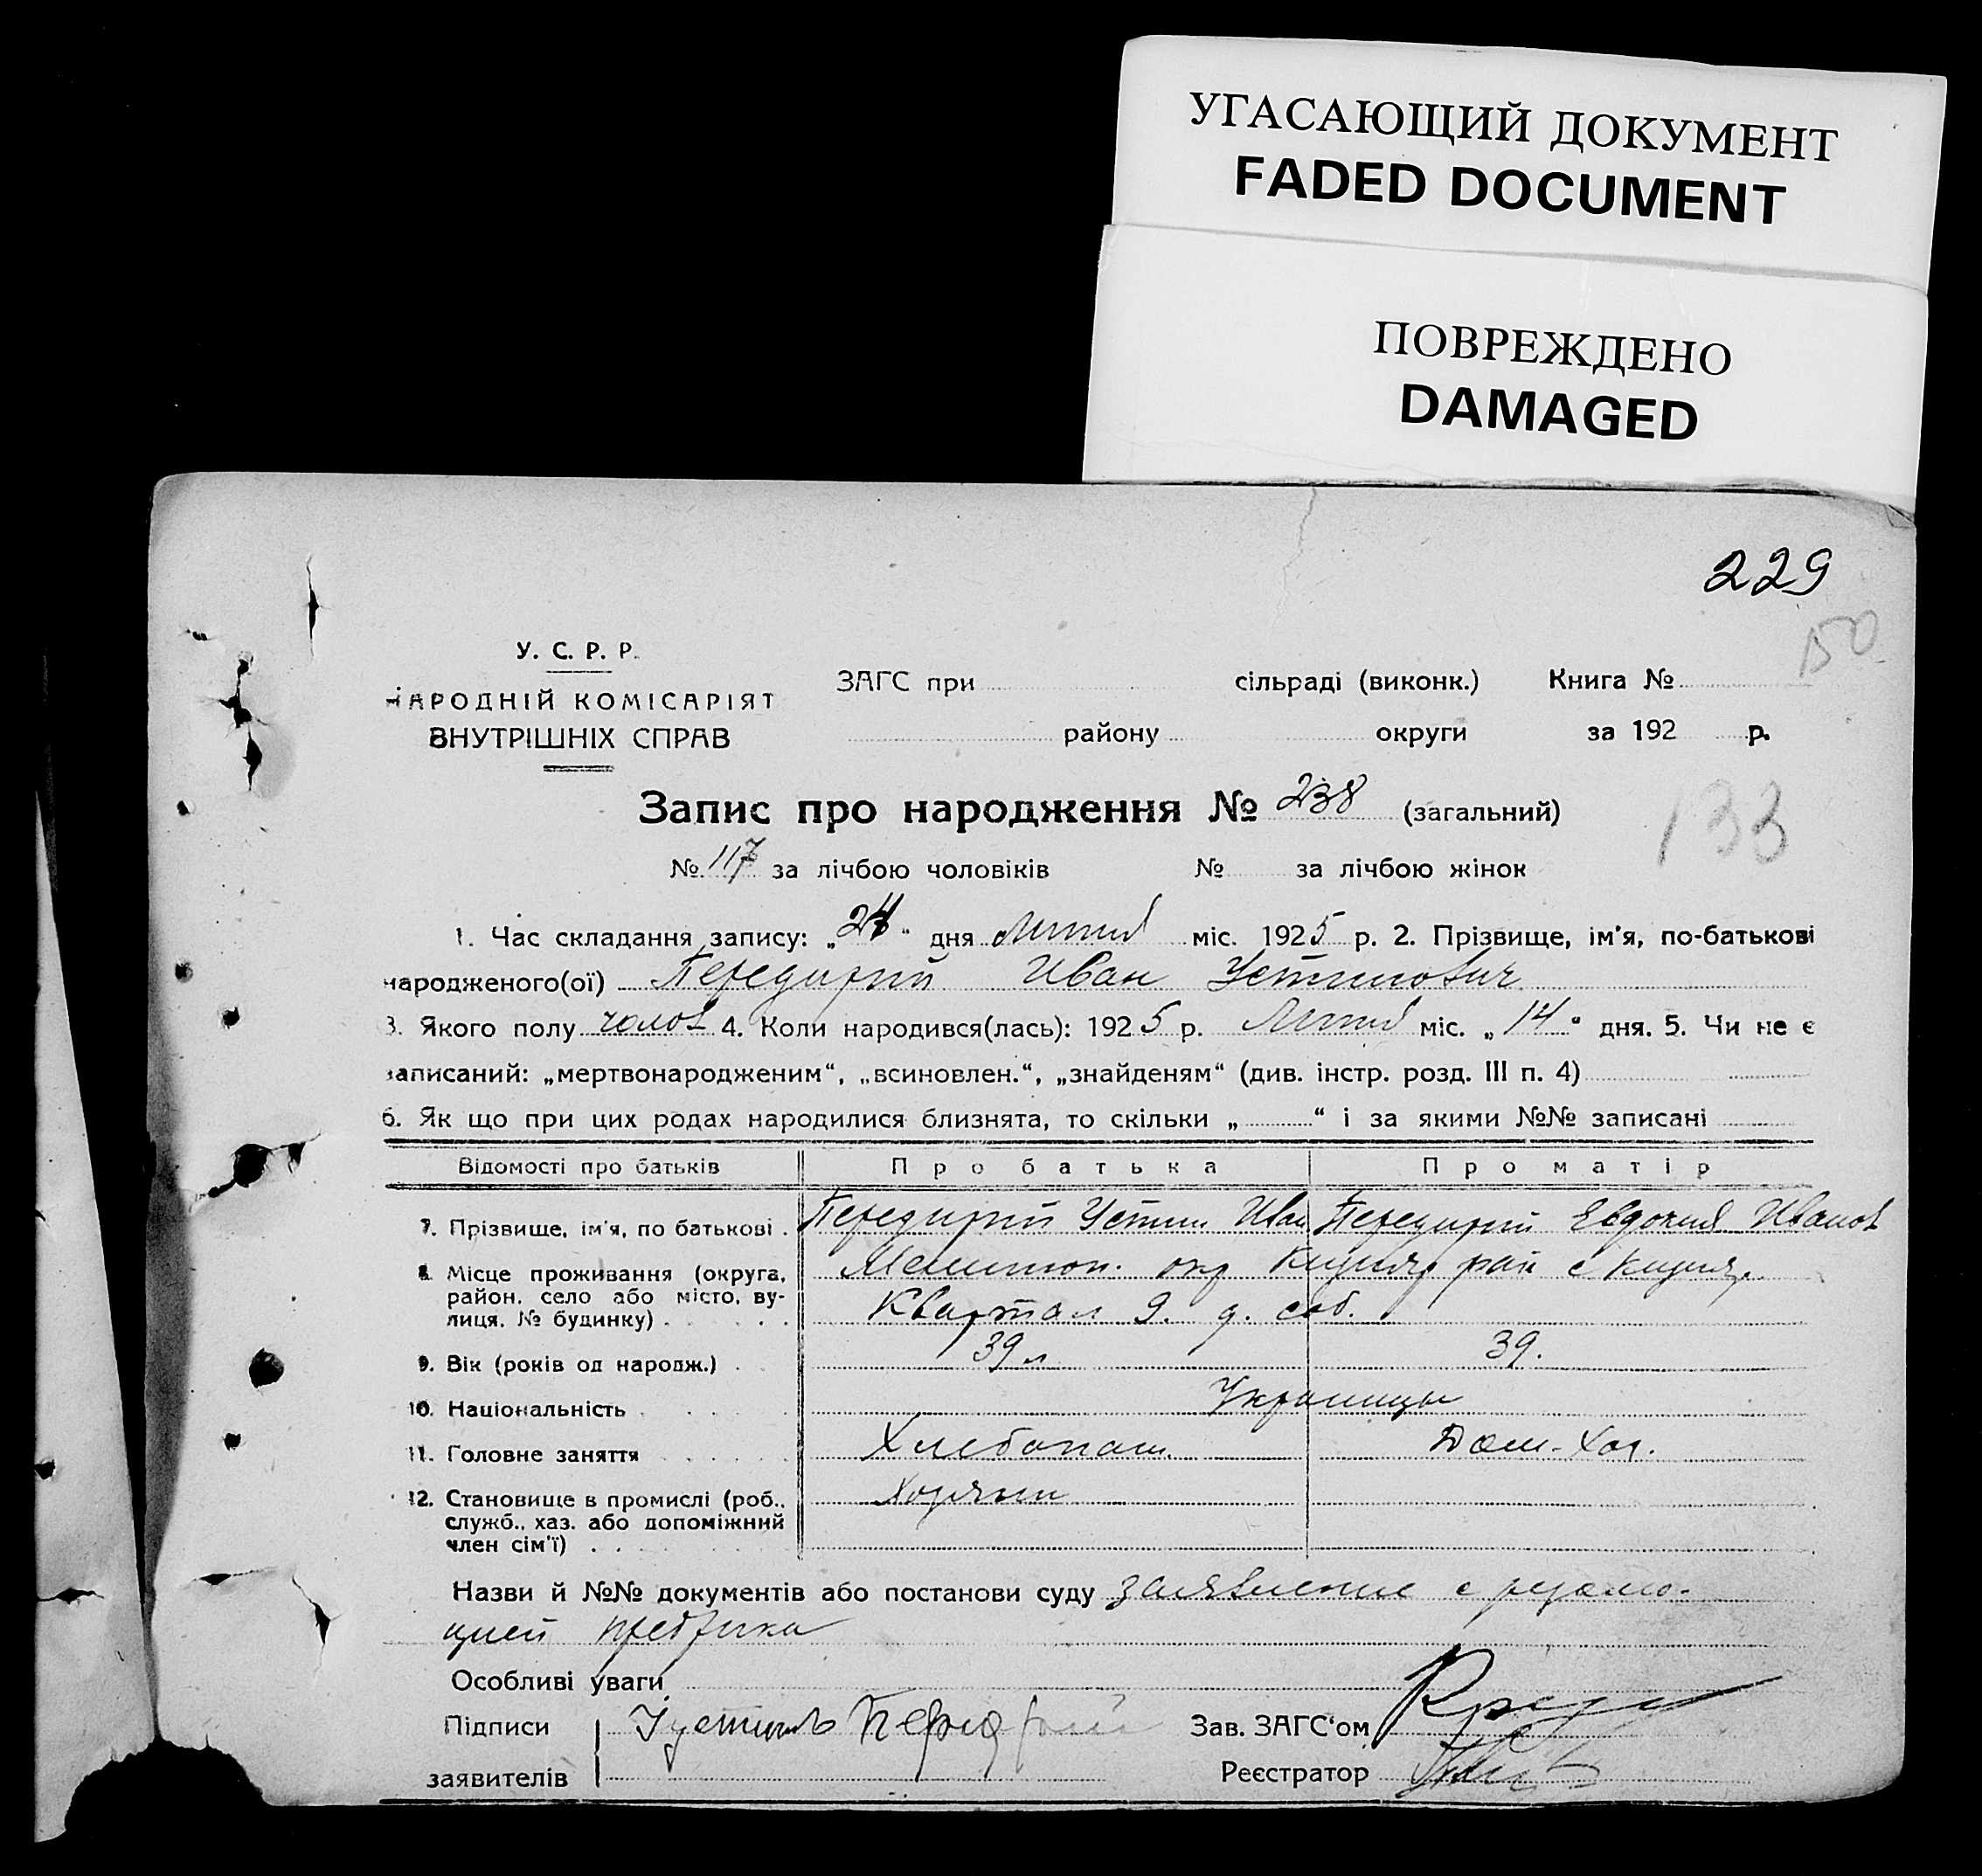 УГАСАЮЩИЙ ДОКУМЕНТ
FADED DOCUMENT
ПОВРЕЖДЕНО
DAMAGED
229
150
У. С. Р. Р.
НАРОДНІЙ КОМІСАРІЯТ
ВНУТРІШНІХ СПРАВ
ЗАГС при сільраді (виконк.) Книга №
району округи за 192 р.
Запис про народження № 238 (загальний)
133
№ 117 за лічбою чоловіків № за лічбою жінок
1. Час складання запису: „24“ дня міс. 1925 р. 2. Прізвище, ім'я, по-батькові
народженого(ої) Передирий Иван Устинович
3. Якого полу чолов 4. Коли народився(лась): 1925 р. міс. „14“ дня. 5. Чи не є
записаний: „мертвонародженим“, „всиновлен.“, „знайденям“ (див. інстр. розд. III п. 4)
6. Як що при цих родах народилися близнята, то скільки „ “ і за якими №№ записані
Відомості про батьків Про батька Про матір
7. Прізвище, ім'я, по батькові . Передирий Устин Иван Передирий Евдокия Иванов
8. Місце проживання (округа, Мелитоп. окр
район, село або місто, ву-
лиця, № будинку) . Квартал 9. д. соб.
9. Вік (років од народж.) . 39 л 39.
10. Національність Украинцы
11. Головне заняття Хлебопаш. Дом-Хоз.
12. Становище в промислі (роб., Хозяин
служб., хаз. або допоміжний
член сім'ї) .
Назви й №№ документів або постанови суду заявление с резолю-
цией
Особливі уваги
Підписи Іустинъ Передирий Зав. ЗАГС'ом
заявителів Реєстратор